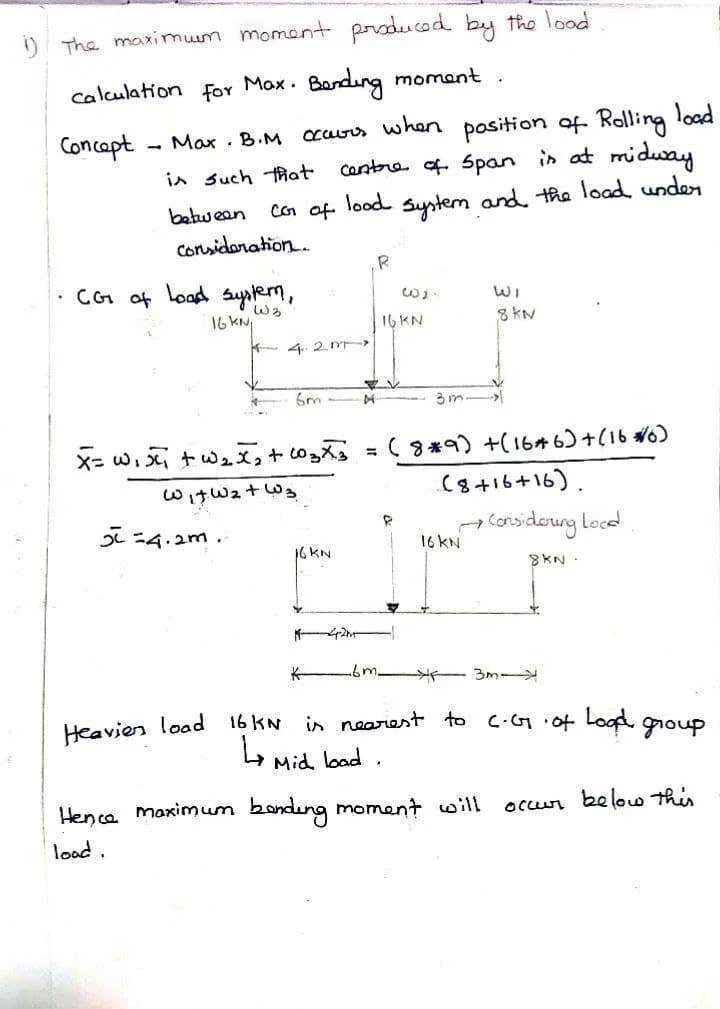 i) The maximum moment produced by the load.
Calculation for Max. Bending moment.
Concept - Max. B.M occurs when position of Rolling load
is such that centre of span is at midway
between CG of load system and the load under
consideration.
· CG of load system,
R
W3
W2
W1
16 KN
16 KN
8 KN
4.2 m
6m
3m
x̄ = W1 x̄1 + W2 x̄2 + W3 x̄3 = (8*9) + (16*6) + (16*0)
W1+W2+W3
(8+16+16).
x̄ = 4.2m.
R
→ Considering load
16 KN
16 KN
8 KN.
4.2m
6m
3m
Heavier load 16 KN is nearest to C.G. of Load group
↳ Mid load.
Hence maximum bending moment will occur below this
load.